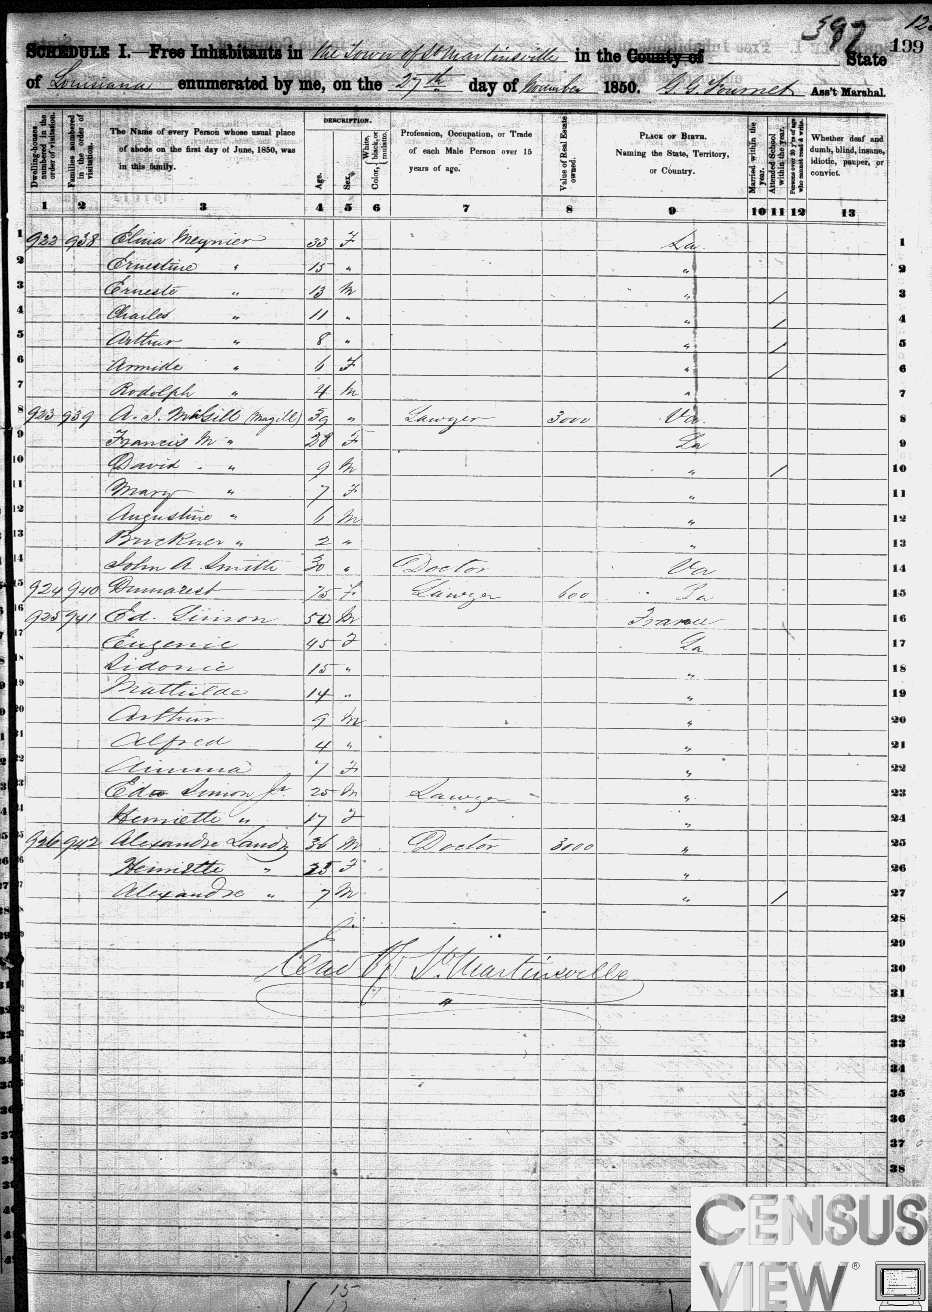 387
199
SCHEDULE I.—Free Inhabitants in the Town of St Martinsville in the County of State
of Louisiana enumerated by me, on the 27th day of November 1850. Ass't Marshal.
Dwelling-houses numbered in the order of visitation.
Families numbered in the order of visitation.
The Name of every Person whose usual place of abode on the first day of June, 1850, was in this family.
DESCRIPTION.
Age.
Sex.
Color, White, black, or mulatto.
Profession, Occupation, or Trade of each Male Person over 15 years of age.
Value of Real Estate owned.
PLACE OF BIRTH. Naming the State, Territory, or Country.
Married within the year.
Attended School within the year.
Persons over 20 y'rs of age who cannot read & write.
Whether deaf and dumb, blind, insane, idiotic, pauper, or convict.
1 2 3 4 5 6 7 8 9 10 11 12 13
1 922 938 Elina Meynier 33 F La. 1
2 Ernestine " 15 " " 2
3 Ernesto " 13 M " / 3
4 Charles " 11 " " / 4
5 Arthur " 8 " " / 5
6 Armide " 6 F " / 6
7 Rodolph " 4 M " 7
8 923 939 A. I. McGill (Magill) 39 " Lawyer 3000 Va. 8
9 Francis M " 28 F La 9
10 David " 9 M " / 10
11 Mary " 7 F " 11
12 Augustine " 6 M " 12
13 Bruckner " 2 " " 13
14 John A. Smith 30 " Doctor Va 14
15 924 940 Dumarest F Lawyer 600 La 15
16 925 941 Ed. Simon 50 M France 16
17 Eugenie 45 F La 17
18 Sidonie 15 " " 18
19 Mathilde 14 " " 19
20 Arthur 9 M " 20
21 Alfred 4 " " 21
22 7 F " 22
23 Simon Jr. 25 M Lawyer " 23
24 Henriette " 17 F " 24
25 926 942 Alexandre Landry 36 M Doctor 3000 " 25
26 Henriette " 25 F " 26
27 Alexandre " 7 M " / 27
28
29
30 End of St Martinsville
31
32
33
34
35
36
37
38
15
CENSUS
VIEW®